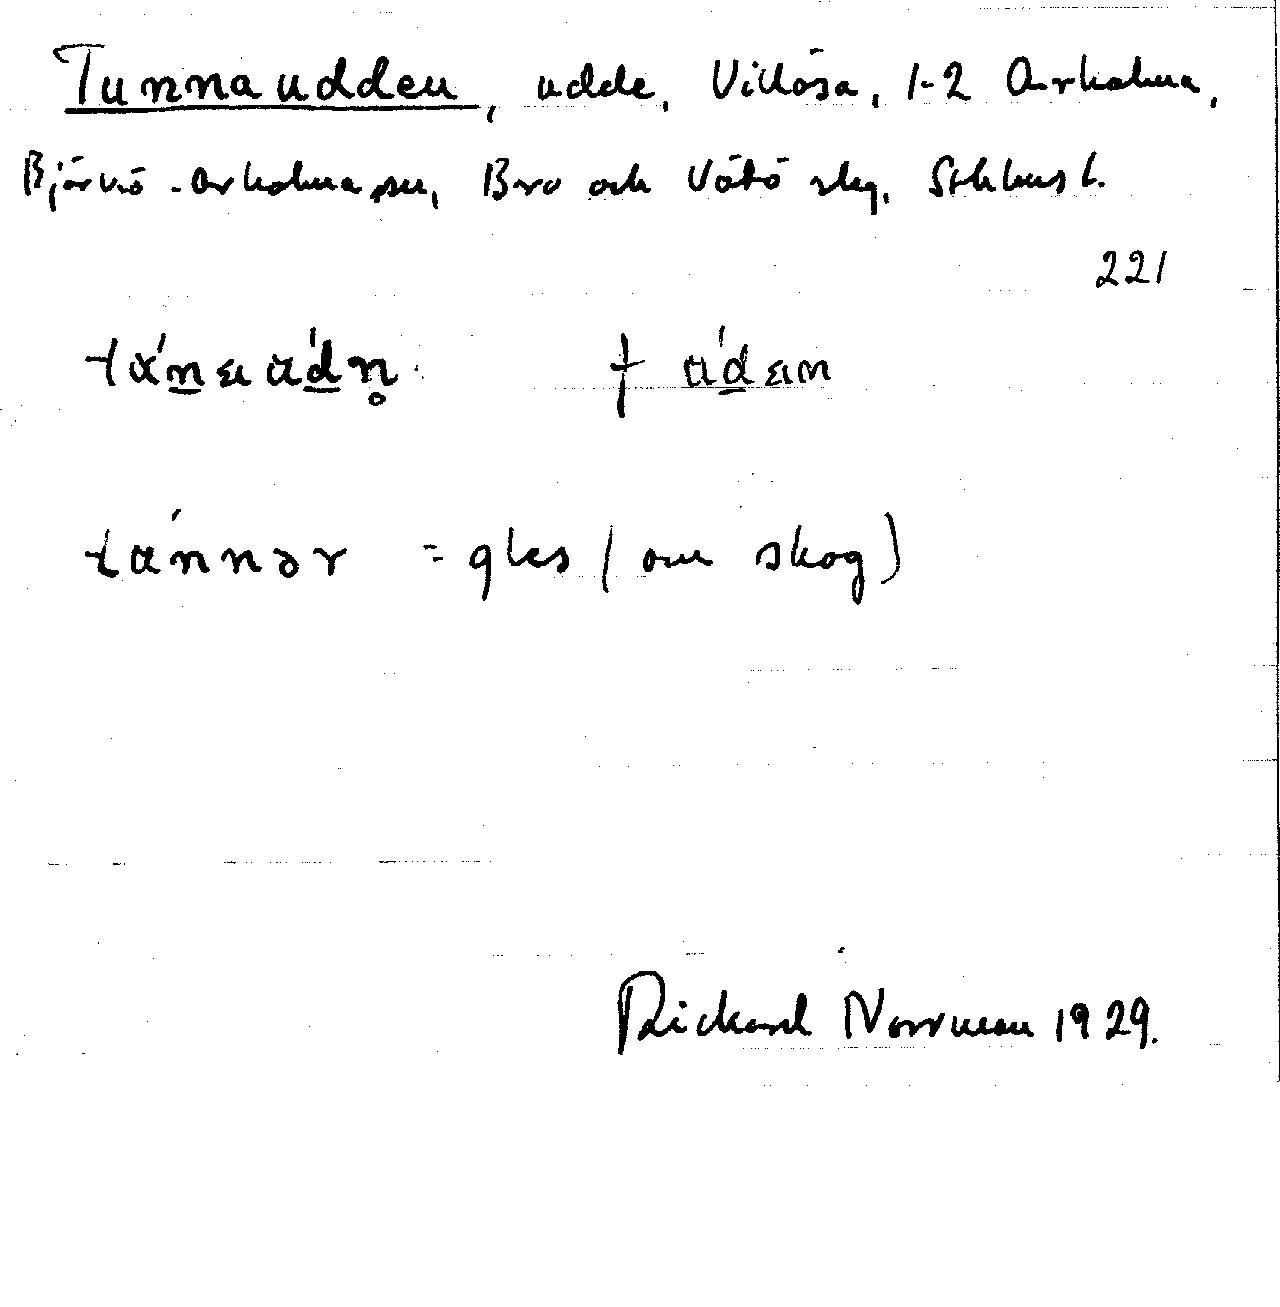 Tunnaudden, udde, Villösa, 1-2 Arholma,
Björkö-Arholma sn, Bro och Vätö skg, Sthlms l.
221
tánaádn̥ † ádan
tánnər = gles (om skog)
Rickard Norrman 1929.